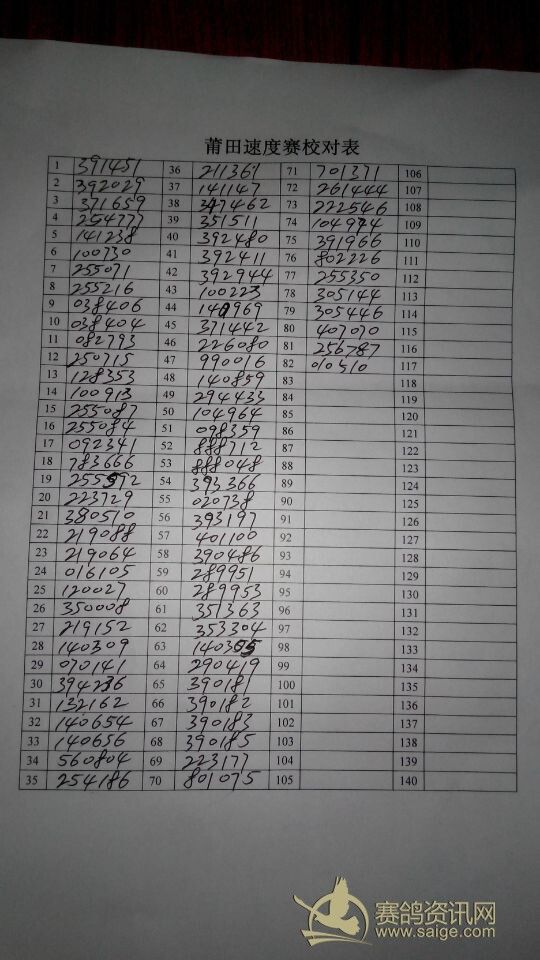 莆田速度赛校对表
1 391451 36 211361 71 701371 106
2 392029 37 141147 72 261444 107
3 371659 38 347462 73 222546 108
4 254777 39 351511 74 104974 109
5 141238 40 392480 75 391966 110
6 100730 41 392411 76 802226 111
7 255071 42 392944 77 255350 112
8 255216 43 100223 78 305144 113
9 038406 44 140969 79 305446 114
10 038404 45 371442 80 407070 115
11 082793 46 226080 81 256787 116
12 250715 47 990016 82 010510 117
13 128353 48 140859 83 118
14 100913 49 294433 84 119
15 255087 50 104964 85 120
16 255084 51 098359 86 121
17 092341 52 888712 87 122
18 783666 53 888048 88 123
19 255592 54 393366 89 124
20 223729 55 020738 90 125
21 380510 56 393197 91 126
22 219088 57 401100 92 127
23 219064 58 390486 93 128
24 016105 59 289951 94 129
25 120027 60 289953 95 130
26 350008 61 351363 96 131
27 219152 62 353304 97 132
28 140309 63 140395 98 133
29 070141 64 290419 99 134
30 394236 65 390181 100 135
31 132162 66 390182 101 136
32 140654 67 390183 102 137
33 140656 68 390185 103 138
34 560804 69 223177 104 139
35 254186 70 801075 105 140
赛鸽资讯网
www.saige.com